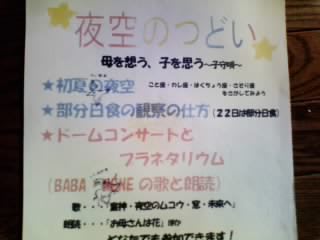 夜空のつどい
母を想う、子を思う～子守唄～
★初夏の夜空
こと座・わし座・はくちょう座・さそり座
をさがしてみよう
★部分日食の観察の仕方(22日は部分日食)
★ドームコンサートと
プラネタリウム
(BABA の歌と朗読)
歌・・・・「童神・夜空のムコウ・窓・未来へ」
朗読・・・・「お母さんは花」ほか
どなたでも参加できます!